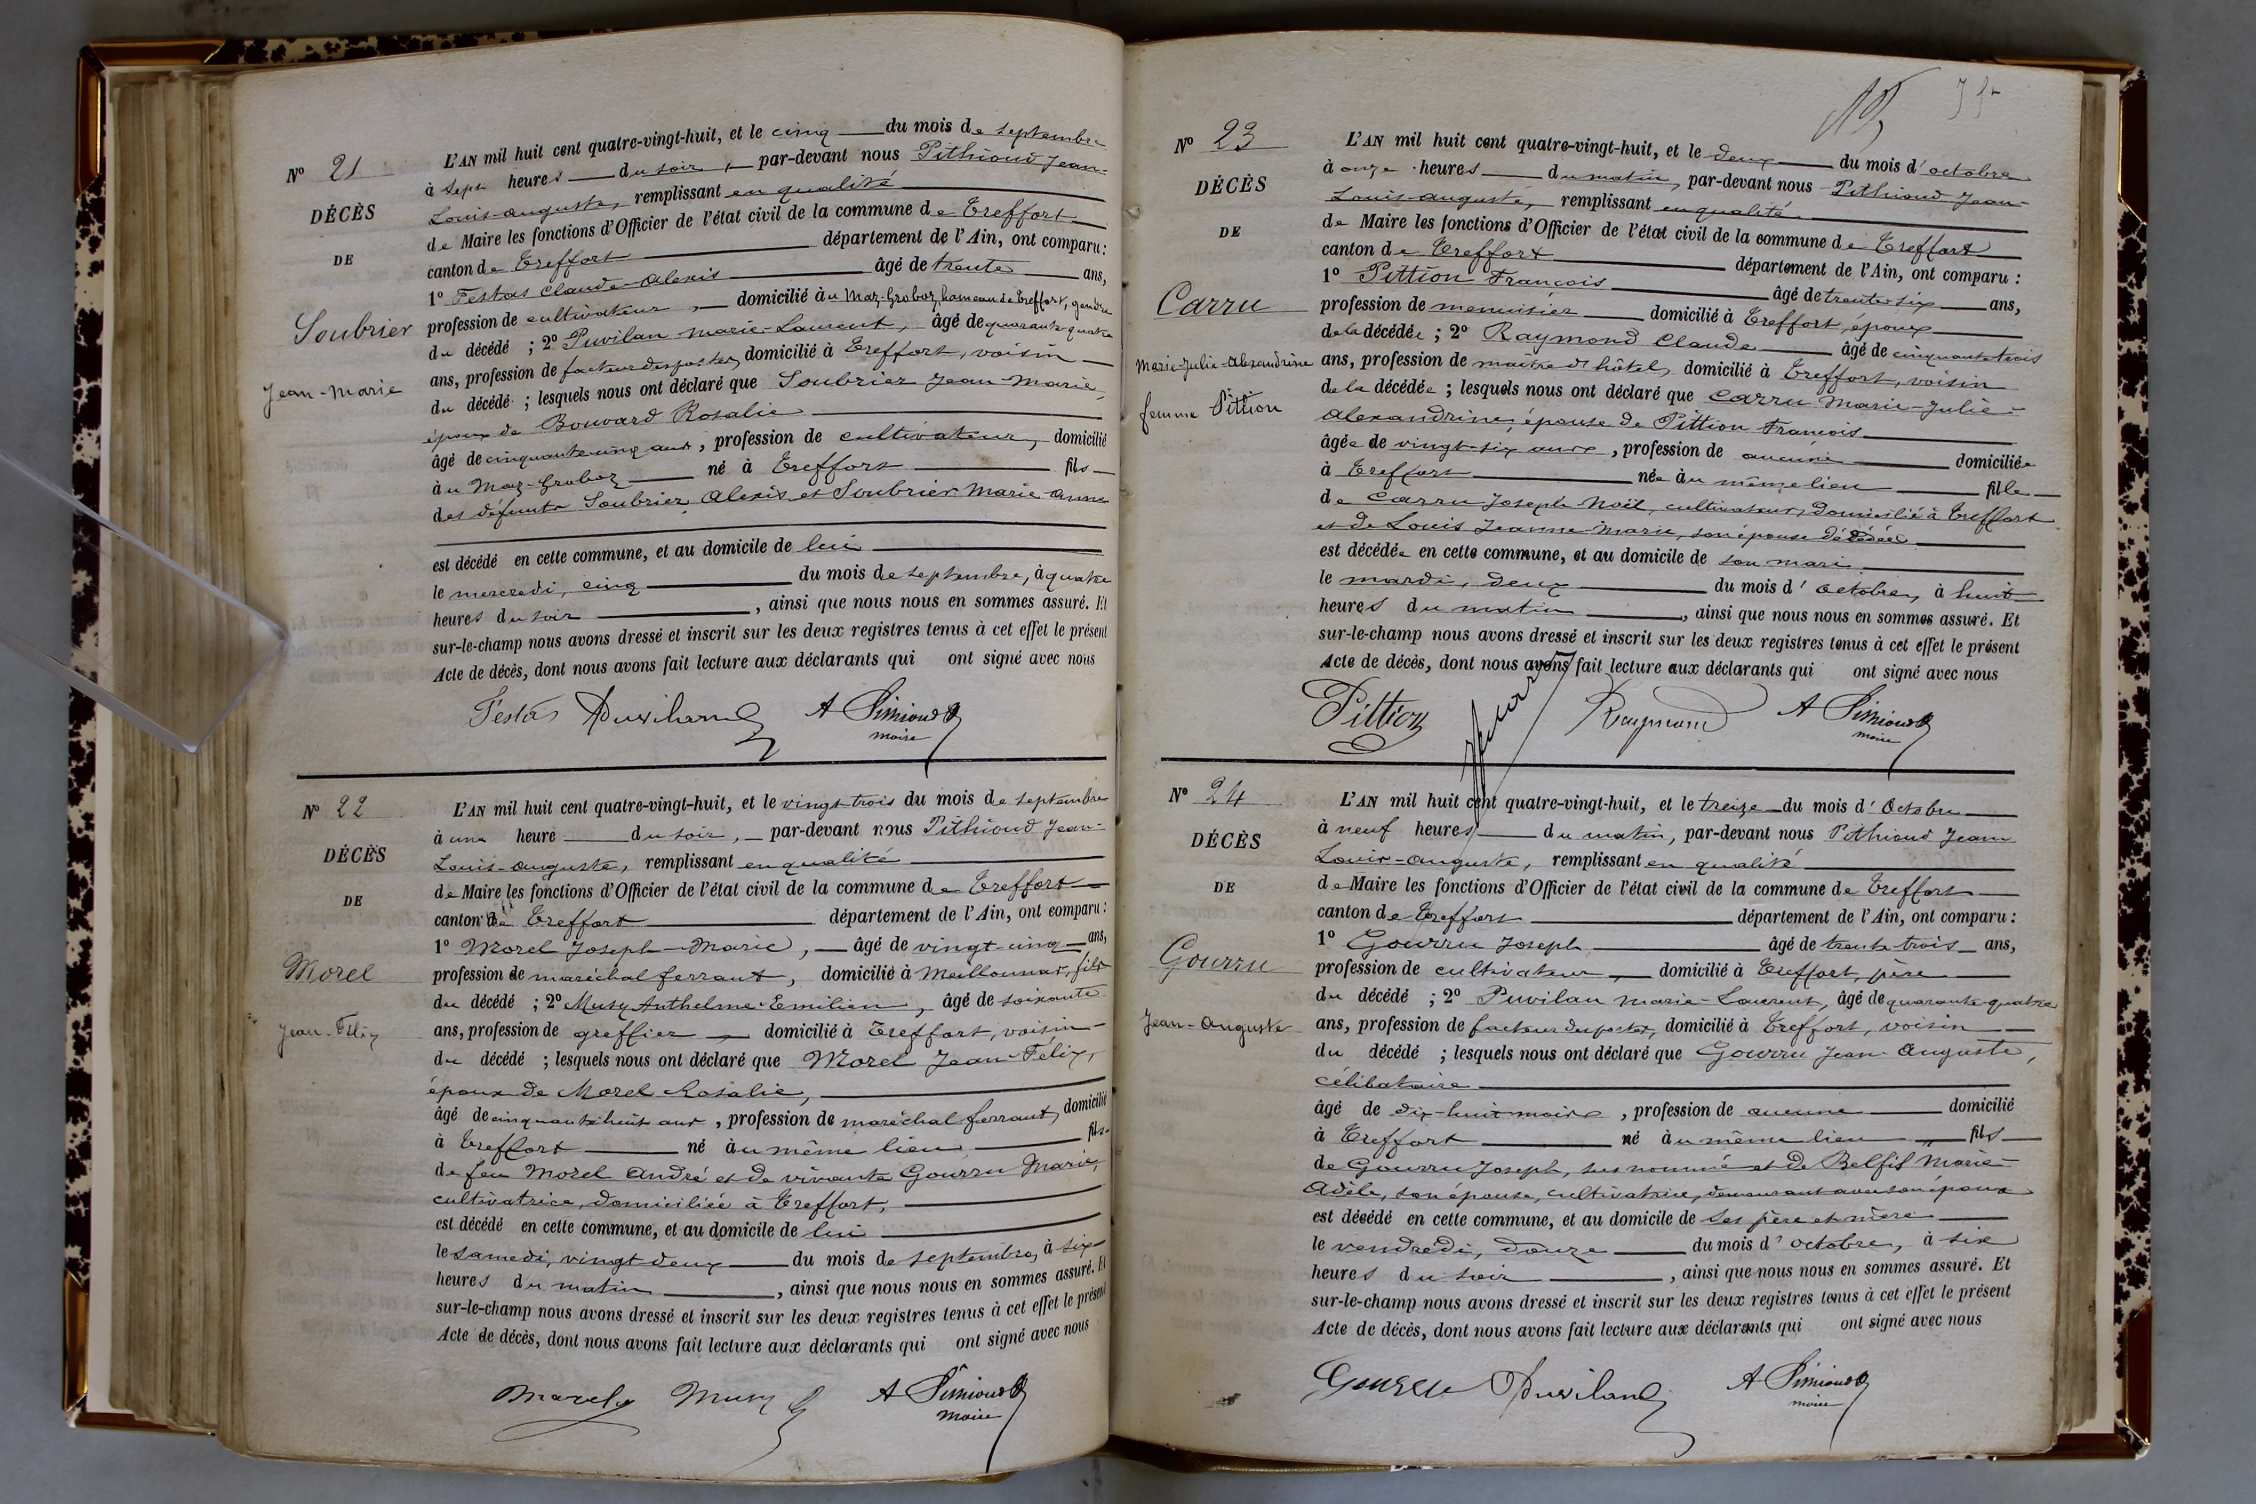 Nº 21
DÉCÈS
DE
Soubrier
Jean-Marie
L'AN mil huit cent quatre-vingt-huit, et le cinq du mois de septembre
à sept heures du soir, par-devant nous Pithioud Jean-
Louis-auguste, remplissant en qualité
de Maire les fonctions d'Officier de l'état civil de la commune de Treffort
canton de Treffort département de l'Ain, ont comparu :
1º Festas Claude-Alexis âgé de trente ans,
profession de cultivateur, domicilié au Maz-Groboz, hameau de Treffort, gendre
du décédé ; 2º Puvilan marie-Laurent, âgé de quarante quatre
ans, profession de facteur des postes, domicilié à Treffort, voisin
du décédé ; lesquels nous ont déclaré que Soubrier Jean-Marie,
époux de Bouvard Rosalie
âgé de cinquante cinq ans, profession de cultivateur, domicilié
au Maz-Groboz né à Treffort fils
des défunts Soubrier Alexis et Soubrier Marie-Anne
est décédé en cette commune, et au domicile de lui
le mercredi, cinq du mois de septembre, à quatre
heures du soir, ainsi que nous nous en sommes assuré. Et
sur-le-champ nous avons dressé et inscrit sur les deux registres tenus à cet effet le présent
Acte de décès, dont nous avons fait lecture aux déclarants qui ont signé avec nous
Festas Puviland A Pithioud
maire
Nº 22
DÉCÈS
DE
Morel
Jean-Félix
L'AN mil huit cent quatre-vingt-huit, et le vingt-trois du mois de septembre
à une heure du soir, par-devant nous Pithioud Jean-
Louis-auguste, remplissant en qualité
de Maire les fonctions d'Officier de l'état civil de la commune de Treffort
canton de Treffort département de l'Ain, ont comparu :
1º Morel Joseph-Marie, âgé de vingt-cinq ans,
profession de maréchal ferrant, domicilié à Meillonnas, fils
du décédé ; 2º Musy Anthelme-Emilien, âgé de soixante
ans, profession de greffier domicilié à Treffort, voisin
du décédé ; lesquels nous ont déclaré que Morel Jean-Félix,
époux de Morel Rosalie,
âgé de cinquante huit ans, profession de maréchal ferrant, domicilié
à Treffort né au même lieu fils
de feu Morel André et de vivante Gourru Marie,
cultivatrice, domiciliée à Treffort,
est décédé en cette commune, et au domicile de lui
le samedi, vingt-deux du mois de septembre, à six
heures du matin, ainsi que nous nous en sommes assuré. Et
sur-le-champ nous avons dressé et inscrit sur les deux registres tenus à cet effet le présent
Acte de décès, dont nous avons fait lecture aux déclarants qui ont signé avec nous
Morel Musy A Pithioud
maire
Nº 23
DÉCÈS
DE
Carru
Marie-Julie-Alexandrine
femme Pittion
L'AN mil huit cent quatre-vingt-huit, et le deux du mois d'octobre
à onze heures du matin, par-devant nous Pithioud Jean-
Louis-auguste, remplissant en qualité
de Maire les fonctions d'Officier de l'état civil de la commune de Treffort
canton de Treffort département de l'Ain, ont comparu :
1º Pittion François âgé de trente six ans,
profession de menuisier domicilié à Treffort, époux
de la décédée ; 2º Raymond Claude âgé de cinquante trois
ans, profession de maître d'hôtel, domicilié à Treffort, voisin
de la décédée ; lesquels nous ont déclaré que Carru Marie-Julie-
Alexandrine, épouse de Pittion François
âgée de vingt-six ans, profession de aucune domiciliée
à Treffort née au même lieu fille
de Carru Joseph Noël, cultivateur, domicilié à Treffort
et de Louis Jeanne-Marie, son épouse décédée
est décédée en cette commune, et au domicile de son mari
le mardi, deux du mois d'octobre, à huit
heures du matin, ainsi que nous nous en sommes assuré. Et
sur-le-champ nous avons dressé et inscrit sur les deux registres tenus à cet effet le présent
Acte de décès, dont nous avons fait lecture aux déclarants qui ont signé avec nous
Pittion Raymond A Pithioud
maire
Nº 24
DÉCÈS
DE
Gourru
Jean-Auguste
L'AN mil huit cent quatre-vingt-huit, et le treize du mois d'Octobre
à neuf heures du matin, par-devant nous Pithioud Jean
Louis-auguste, remplissant en qualité
de Maire les fonctions d'Officier de l'état civil de la commune de Treffort
canton de Treffort département de l'Ain, ont comparu :
1º Gourru Joseph âgé de trente trois ans,
profession de cultivateur, domicilié à Treffort, père
du décédé ; 2º Puvilan marie-Laurent, âgé de quarante-quatre
ans, profession de facteur des postes, domicilié à Treffort, voisin
du décédé ; lesquels nous ont déclaré que Gourru Jean-Auguste,
célibataire
âgé de dix-huit mois, profession de aucune domicilié
à Treffort né au même lieu fils
de Gourru Joseph, sus nommé et de Belfis Marie-
Adèle, son épouse, cultivatrice, demeurant avec son époux
est décédé en cette commune, et au domicile de ses père et mère
le vendredi, douze du mois d'octobre, à six
heures du soir, ainsi que nous nous en sommes assuré. Et
sur-le-champ nous avons dressé et inscrit sur les deux registres tenus à cet effet le présent
Acte de décès, dont nous avons fait lecture aux déclarants qui ont signé avec nous
Gourru Puviland A Pithioud
maire